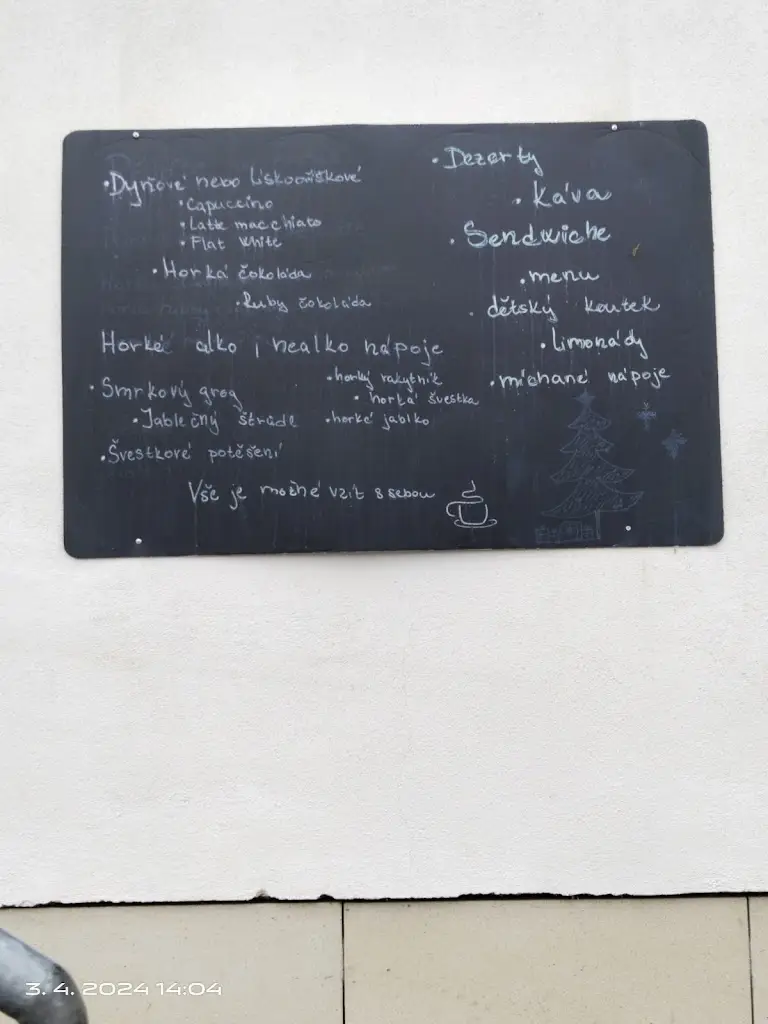 • Dyňové nebo lískooříškové
• Capuccino
• Latte macchiato
• Flat White
• Horká čokoláda
• Ruby čokoláda
Horké alko i nealko nápoje
• Smrkový grog
• Jablečný štrúdl
• Švestkové potěšení
• horký rakytník
• horká švestka
• horké jablko
Vše je možné vzít s sebou
• Dezerty
• Káva
• Sendwiche
• menu
• dětský koutek
• limonády
• míchané nápoje
3. 4. 2024 14:04